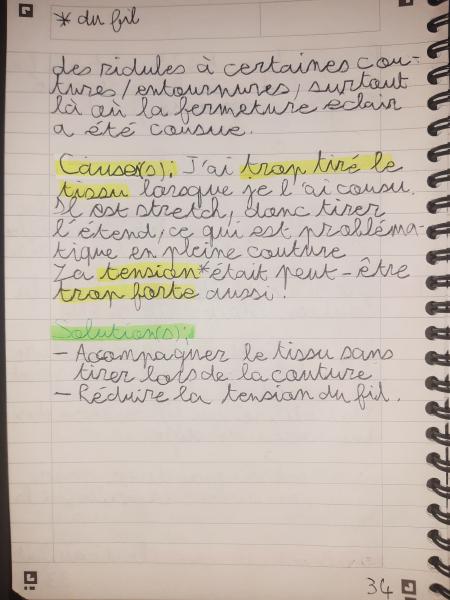 * du fil
des ridules à certaines cou-
tures/entournures, surtout
là où la fermeture eclair
a été cousue.
Cause(s): J'ai trop tiré le
tissu lorsque je l'ai cousu.
Il est stretch, donc tirer
l'étend, ce qui est probléma-
tique en pleine couture
La tension* était peut-être
trop forte aussi.
Solution(s):
- Accompagner le tissu sans
tirer lors de la couture
- Réduire la tension du fil.
34